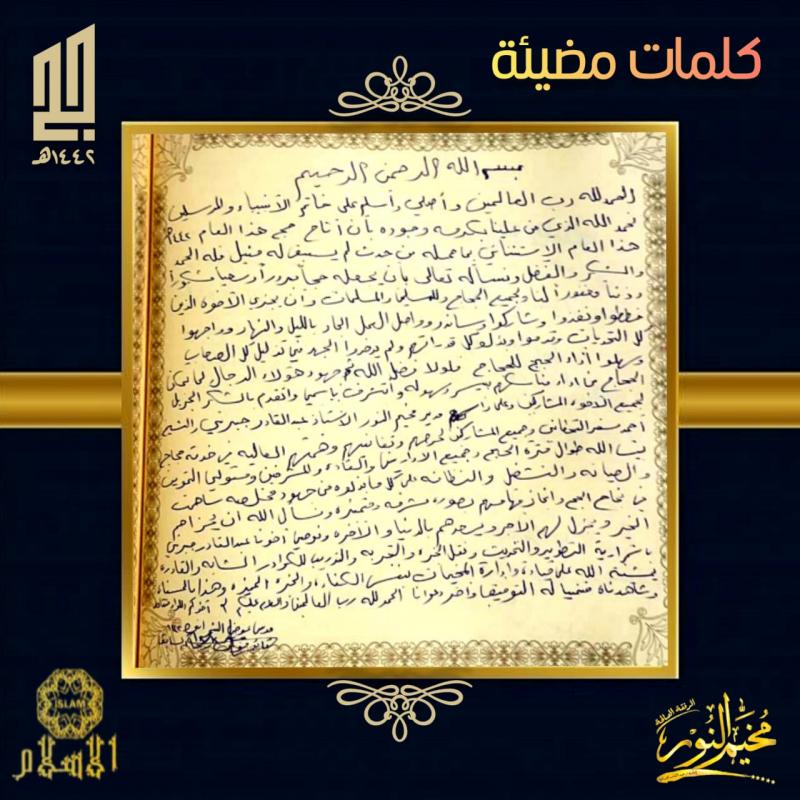 كلمات مضيئة
١٤٤٢هـ
بسم الله الرحمن الرحيم
الحمد لله رب العالمين وأصلي وأسلم على خاتم الأنبياء والمرسلين
نحمد الله الذي من علينا بكرمه وجوده بأن أتاح حج هذا العام ١٤٤٢هـ
هذا العام الاستثنائي بما حمله من حدث لم يسبق له مثيل فله الحمد
والشكر والفضل ونسأله تعالى بأن يجعله حجاً مبروراً وسعياً مشكوراً
وذنباً مغفوراً لنا ولجميع الحجاج وللمسلمين والمسلمات وأن يجزي الأخوة الذين
خططوا ونفذوا وشاركوا وساندوا وواصل العمل الجاد بالليل والنهار وواجهوا
كل التحديات وقدموا وبذلوا كل قدراتهم ولم يدخروا الجهد في تذليل كل الصعاب
وسهلوا أداء الحج للحجاج فلولا فضل الله ثم جهود هؤلاء الرجال لما تمكن
الحجاج من أداء مناسكهم بيسر وسهولة وأتشرف باسمي وأتقدم بالشكر الجزيل
لجميع الأخوة المشاركين وعلى رأسهم مدير مخيم النور الأستاذ عبد القادر جبرتي والشيخ
أحمد سفر وجميع المشاركين لحرصهم وتفانيهم وهمتهم العالية في خدمة حجاج
بيت الله طوال فترة الحج وجميع الإداريين
والصيانة والتشغيل والنظافة على كل ما بذلوه من جهود مخلصة ساهمت
في نجاح الحج وإنجاز مهامهم بصورة مشرفة ومتميزة ونسأل الله أن يجزاهم
الخير ويجزل لهم الأجر ويسعدهم بالدنيا والآخرة ونوصي أخونا عبد القادر جبرتي
باستمرارية التطوير والتحديث ونقل الخبرة والتجربة والتدريب للكوادر الشابة والقادرة
بمشيئة الله على قيادة وإدارة المخيمات بنفس الكفاءة والخبرة المميزة وهذا ما لمسناه
وشاهدناه فتمنياتي له التوفيق وآخر دعوانا الحمد لله رب العالمين والسلام عليكم
ISLAM
الاسلام
مخيم النور